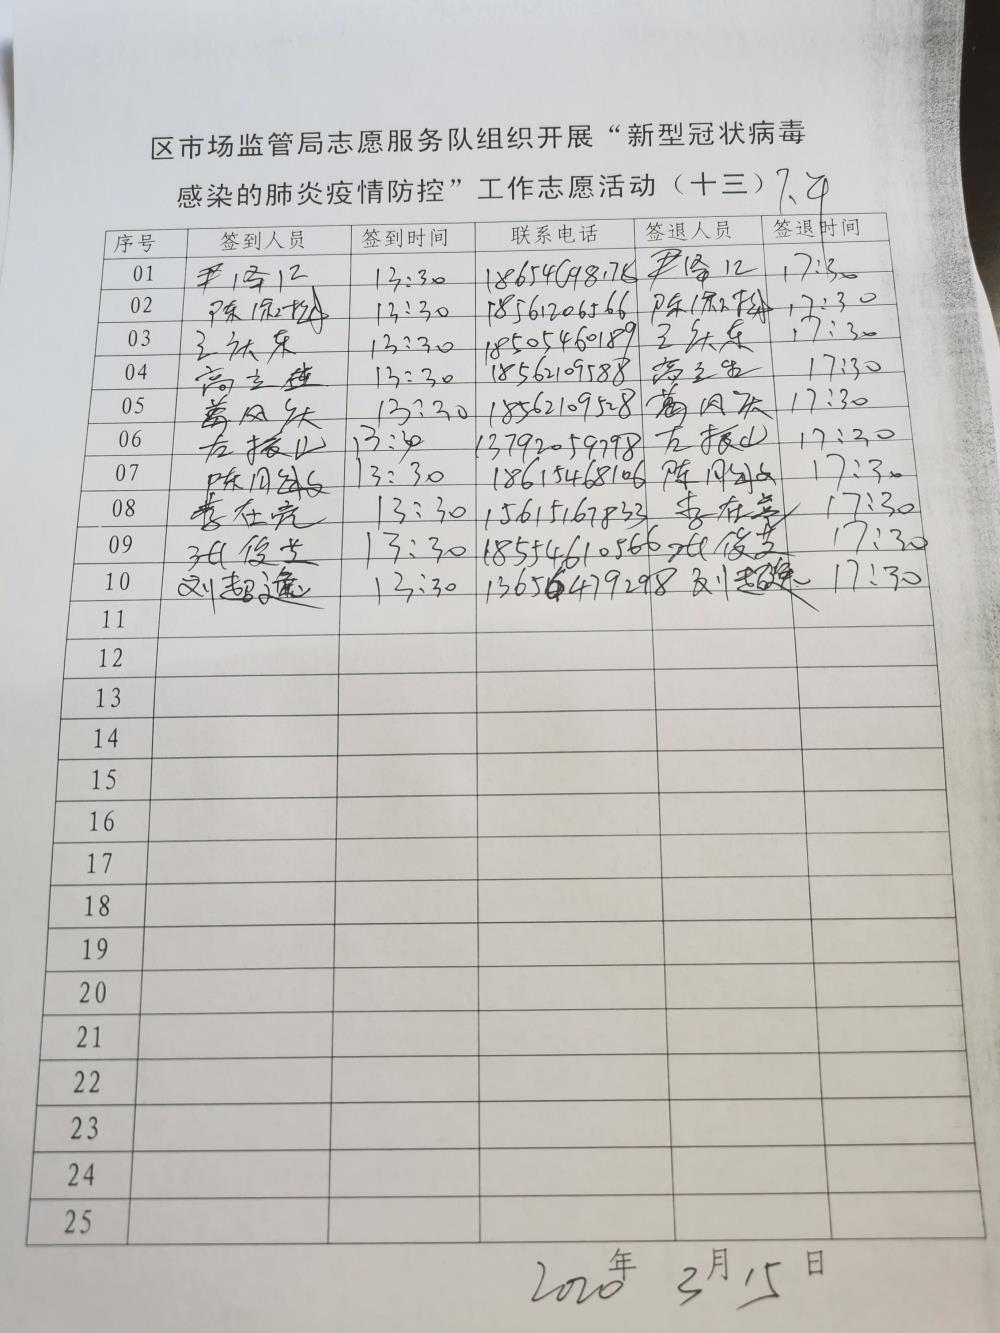 区市场监管局志愿服务队组织开展“新型冠状病毒
感染的肺炎疫情防控”工作志愿活动（十三）下午
序号 签到人员 签到时间 联系电话 签退人员 签退时间
01 尹泽江 13:30 尹泽江 17:30
02 13:30 18561206566 17:30
03 王庆东 13:30 18505460189 王庆东 17:30
04 13:30 18562109588 17:30
05 葛风庆 13:30 18562109528 葛风庆 17:30
06 左振山 13:30 13792059798 左振山 17:30
07 13:30 18615468106 17:30
08 李在亮 13:30 15615167833 李在亮 17:30
09 13:30 18554610566 17:30
10 刘超逸 13:30 13656479298 刘超逸 17:30
11
12
13
14
15
16
17
18
19
20
21
22
23
24
25
2020年3月15日